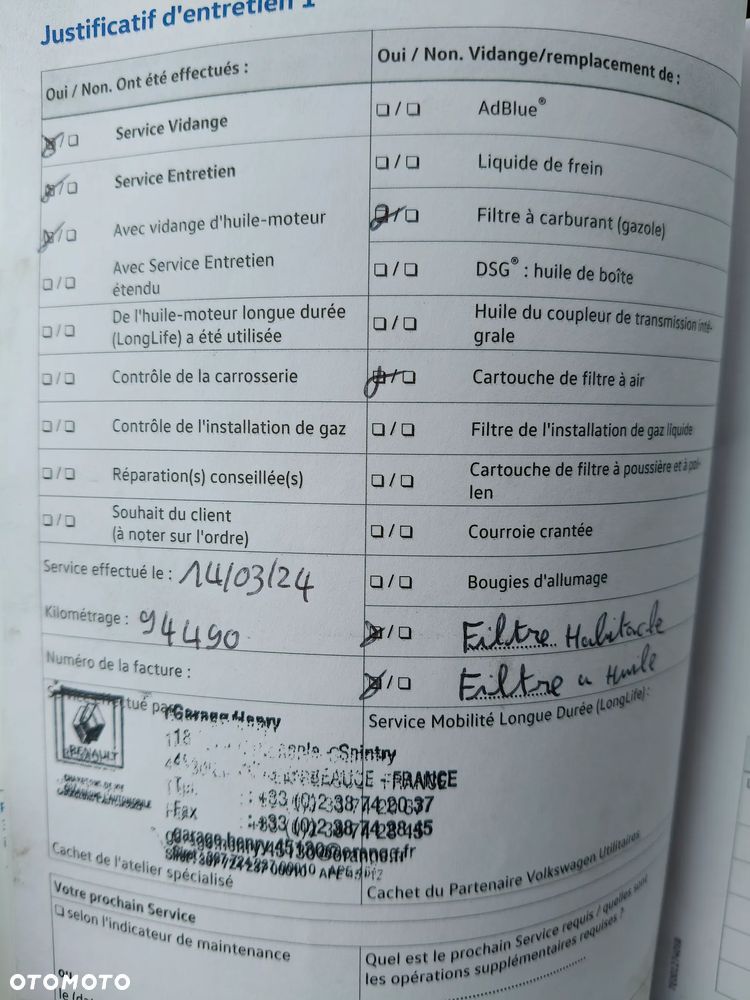 Justificatif d'entretien 1
Oui / Non. Ont été effectués :
Service Vidange
Service Entretien
Avec vidange d'huile-moteur
Avec Service Entretien
étendu
De l'huile-moteur longue durée
(LongLife) a été utilisée
Contrôle de la carrosserie
Contrôle de l'installation de gaz
Réparation(s) conseillée(s)
Souhait du client
(à noter sur l'ordre)
Service effectué le : 14/03/24
Kilométrage : 94490
Numéro de la facture :
Service effectué par
Garage Henry
18
Spintry
BEAUCE - FRANCE
: +33 (0)2 38 74 20 37
Fax : +33 (0)2 38 74 28 45
garage.henry.45130@orange.fr
RENAULT
Cachet de l'atelier spécialisé
Oui / Non. Vidange/remplacement de :
AdBlue®
Liquide de frein
Filtre à carburant (gazole)
DSG® : huile de boîte
Huile du coupleur de transmission inté-
grale
Cartouche de filtre à air
Filtre de l'installation de gaz liquide
Cartouche de filtre à poussière et à pol-
len
Courroie crantée
Bougies d'allumage
Filtre Habitacle
Filtre a Huile
Service Mobilité Longue Durée (LongLife) :
Cachet du Partenaire Volkswagen Utilitaires
Votre prochain Service
selon l'indicateur de maintenance
ou
Quel est le prochain Service requis / quelles sont
les opérations supplémentaires requises ?
OTOMOTO